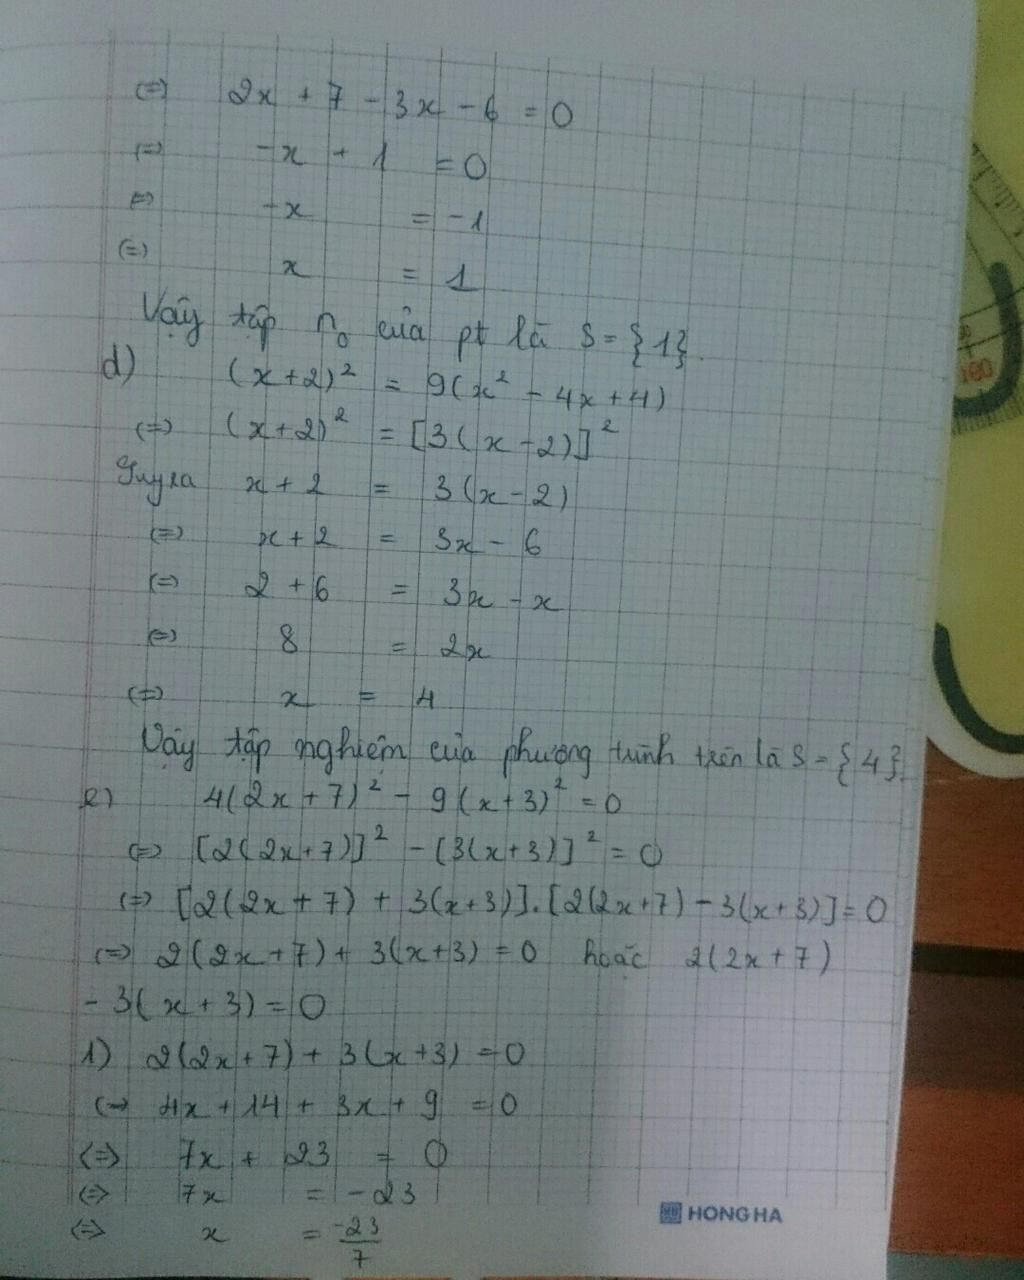 (=) 2x + 7 - 3x - 6 = 0
(=) -x + 1 = 0
(=) -x = -1
(=) x = 1
Vậy tập n₀ của pt là S = {1}.
d) (x+2)² = 9(x² - 4x + 4)
(=) (x+2)² = [3(x-2)]²
Suy ra x + 2 = 3(x-2)
(=) x + 2 = 3x - 6
(=) 2 + 6 = 3x - x
(=) 8 = 2x
(=) x = 4
Vậy tập nghiệm của phương trình trên là S = {4}.
e) 4(2x+7)² - 9(x+3)² = 0
(=) [2(2x+7)]² - [3(x+3)]² = 0
(=) [2(2x+7) + 3(x+3)].[2(2x+7) - 3(x+3)] = 0
(=) 2(2x+7) + 3(x+3) = 0 hoặc 2(2x+7)
- 3(x+3) = 0
1) 2(2x+7) + 3(x+3) = 0
(=) 4x + 14 + 3x + 9 = 0
(=) 7x + 23 = 0
(=) 7x = -23
(=) x = -23/7
HONG HA
180